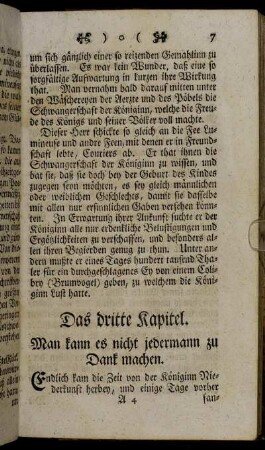 )o( 7
um sich gänzlich einer so reizenden Gemahlinn zu
überlassen. Es war kein Wunder, daß eine so
sorgfältige Aufwartung in kurzen ihre Wirkung
that. Man vernahm bald darauf mitten unter
den Wäschereyen der Aerzte und des Pöbels die
Schwangerschaft der Königinn, welche die Freu-
de des Königs und seiner Völker voll machte.
Dieser Herr schickte so gleich an die Fee Lu-
mineuse und andre Feen, mit denen er in Freund-
schaft lebte, Couriers ab. Er that ihnen die
Schwangerschaft der Königinn zu wissen, und
bat sie, daß sie doch bey der Geburt des Kindes
zugegen seyn möchten, es sey gleich männlichen
oder weiblichen Geschlechts, damit sie dasselbe
mit allen nur ersinnlichen Gaben versehen könn-
ten. In Erwartung ihrer Ankunft suchte er der
Königinn alle nur erdenkliche Belustigungen und
Ergötzlichkeiten zu verschaffen, und besonders al-
len ihren Begierden genug zu thun. Unter an-
dern mußte er eines Tages hundert tausend Tha-
ler für ein durchgeschlagenes Ey von einem Coli-
bry (Brumvogel) geben, zu welchem die Köni-
ginn Lust hatte.
Das dritte Kapitel.
Man kann es nicht jedermann zu
Dank machen.
Endlich kam die Zeit von der Königinn Nie-
derkunft herbey, und einige Tage vorher
A 4 san-